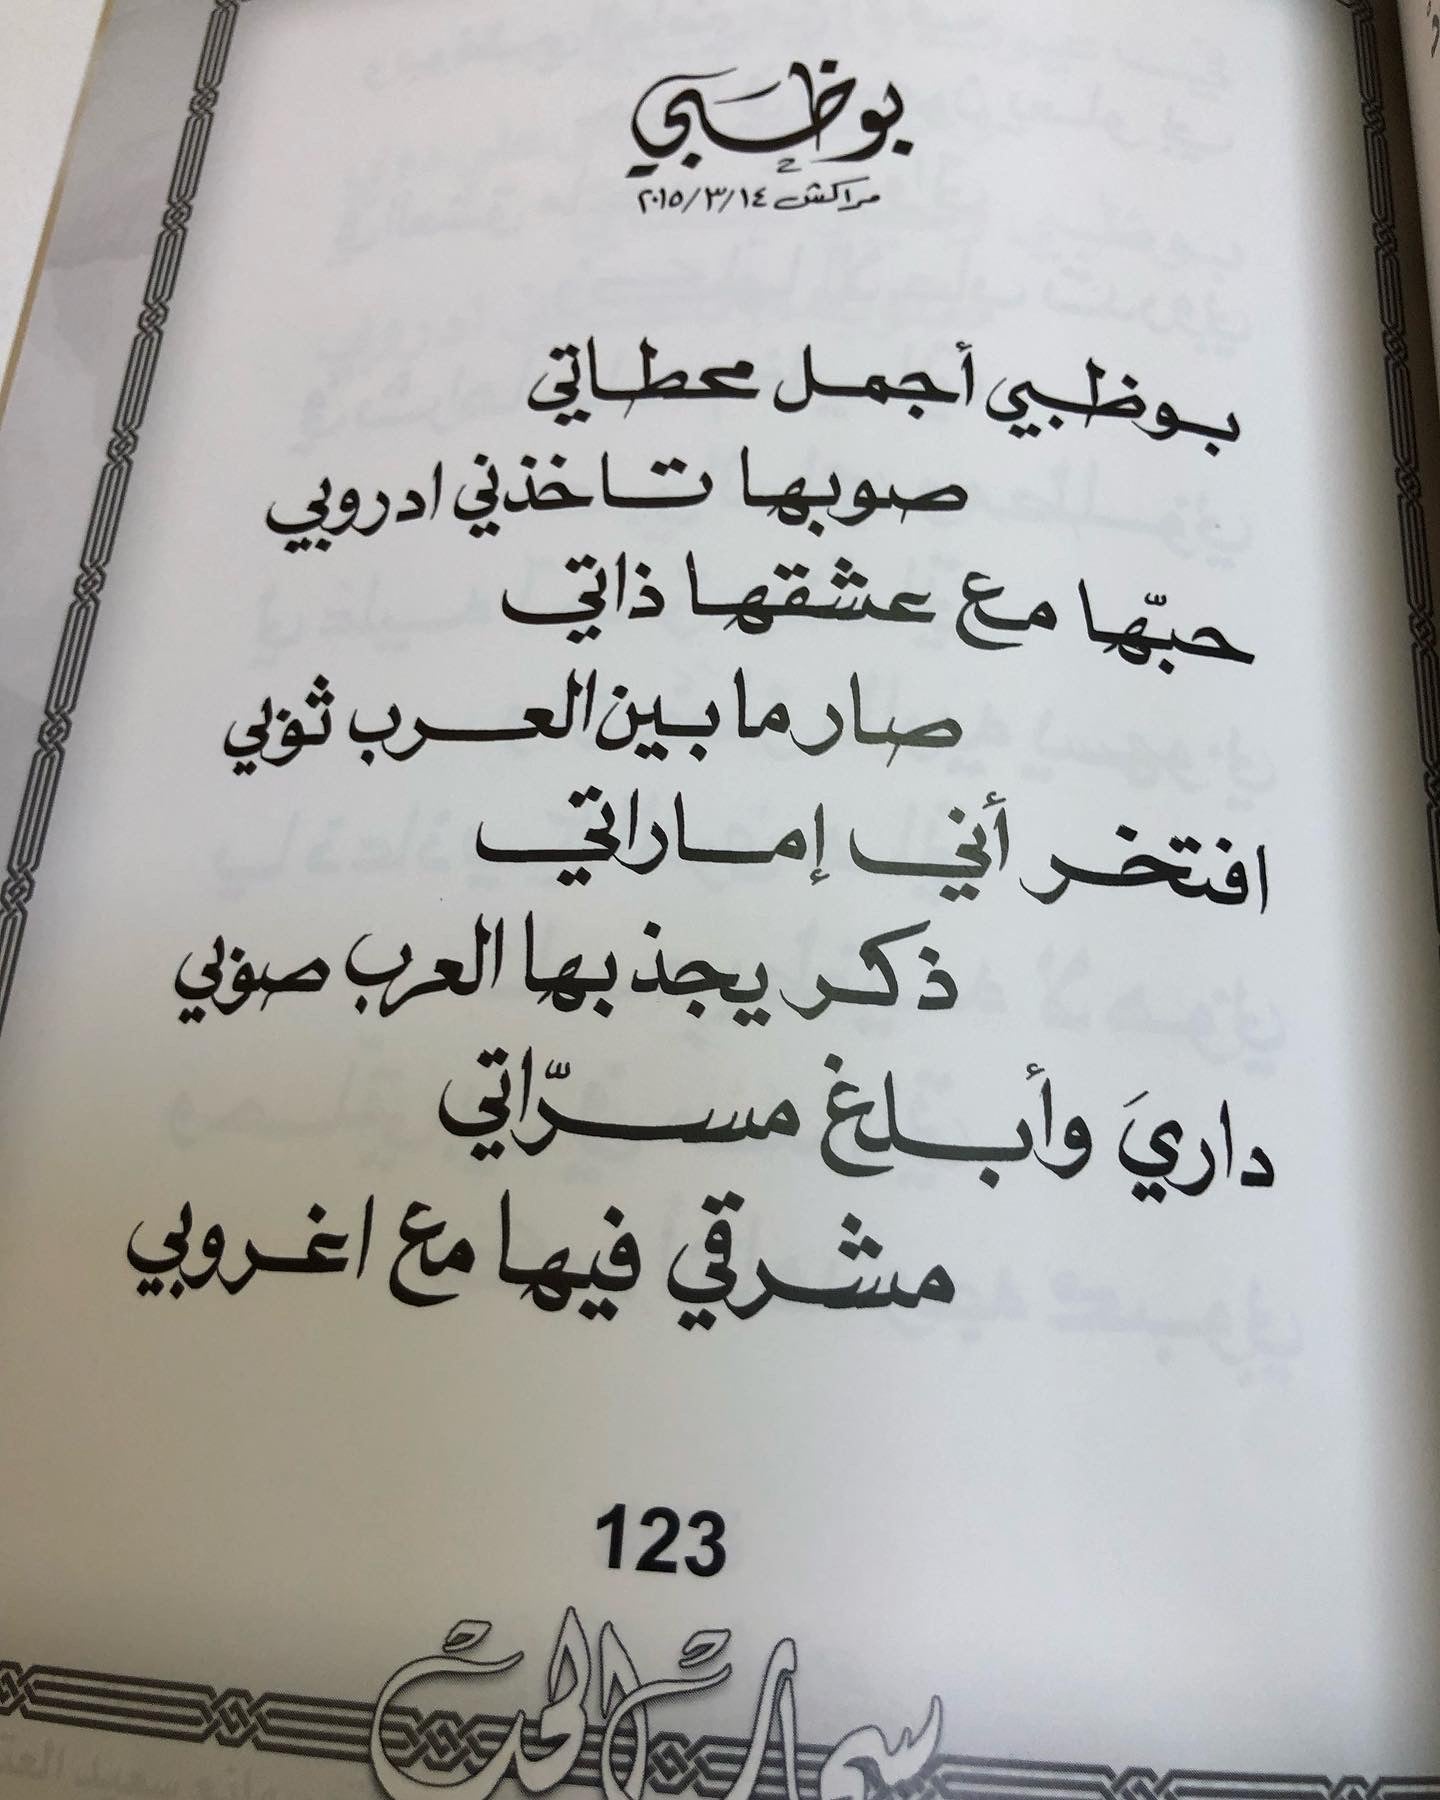 بوظبي
مراكش ٢٠١٥/٣/١٤
بوظبي أجمل محطاتي
صوبها تاخذني ادروبي
حبّها مع عشقها ذاتي
صار ما بين العرب ثوبي
افتخر أني إماراتي
ذكر يجذبها العرب صوبي
داريَ وأبلغ مسرّاتي
مشرقي فيها مع اغروبي
123